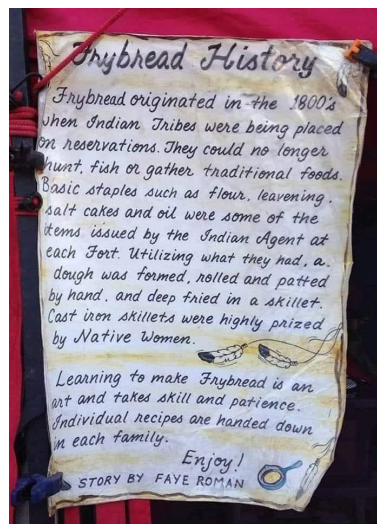 Frybread History
Frybread originated in the 1800's
when Indian Tribes were being placed
on reservations. They could no longer
hunt, fish or gather traditional foods.
Basic staples such as flour, leavening,
salt cakes and oil were some of the
items issued by the Indian Agent at
each Fort. Utilizing what they had, a
dough was formed, rolled and patted
by hand, and deep fried in a skillet.
Cast iron skillets were highly prized
by Native Women.
Learning to make Frybread is an
art and takes skill and patience.
Individual recipes are handed down
in each family.
Enjoy!
STORY BY FAYE ROMAN